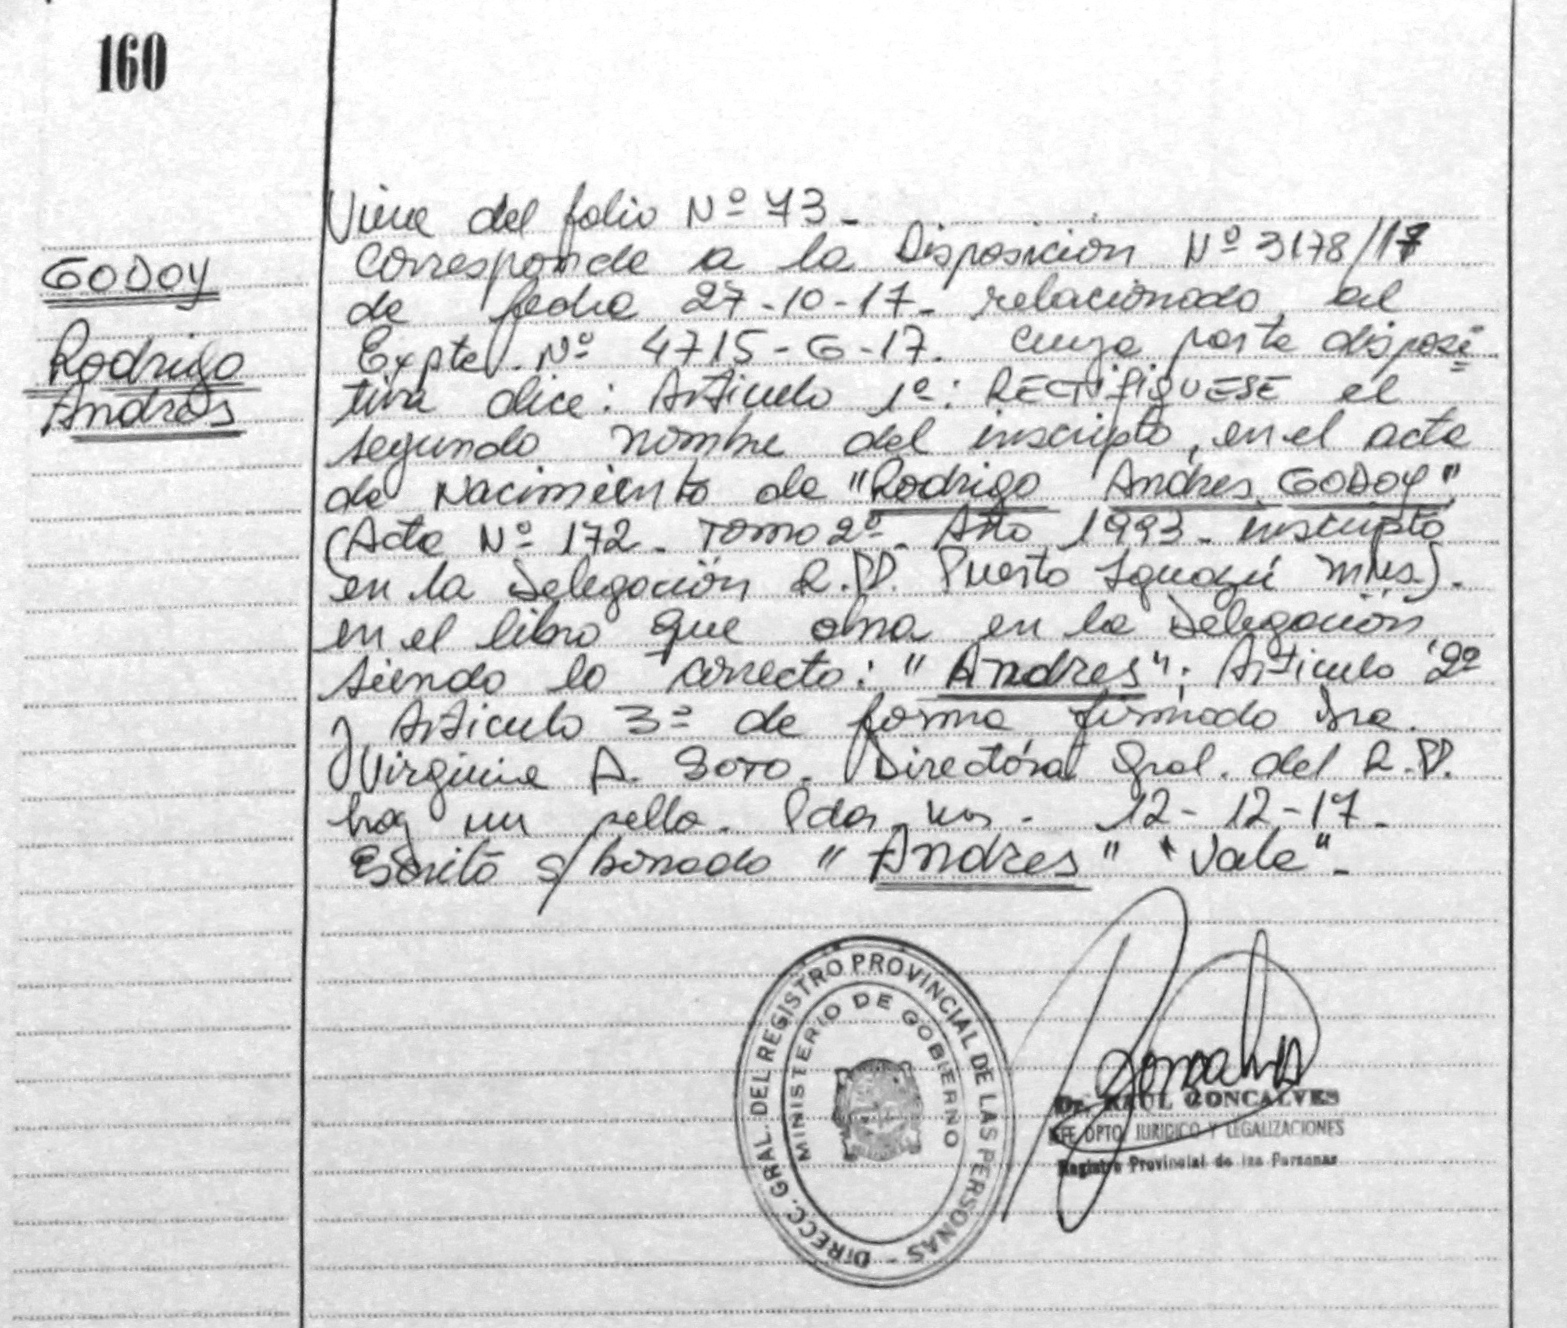 160
Viene del folio Nº 73-
GODOY
Rodrigo
Andrés
Corresponde a la Disposición Nº 3178/17
de fecha 27-10-17- relacionado al
Expte. Nº 4715-G-17. cuya parte disposi=
tiva dice: Artículo 1º: RECTIFIQUESE el
segundo nombre del inscripto, en el acta
de Nacimiento de "Rodrigo Andres GODOY"
(Acta Nº 172- Tomo 2º- Año 1993- inscripto
en la Delegación R.PP. Puerto Iguazú Mnes.).
en el libro que obra en la Delegación
siendo lo correcto: "Andres"; Articulo 2º
y Articulo 3º de forma firmado Dra.
Virginia A. Soto. Directora Gral. del R.PP.
hay un sello. Pdas. Mns. 12-12-17-
Escrito s/ borrado "Andres" "Vale"-
DIRECC. GRAL. DEL REGISTRO PROVINCIAL DE LAS PERSONAS -
MINISTERIO DE GOBIERNO
Dr. RAUL GONCALVES
JEFE DPTO. JURIDICO Y LEGALIZACIONES
Registro Provincial de las Personas